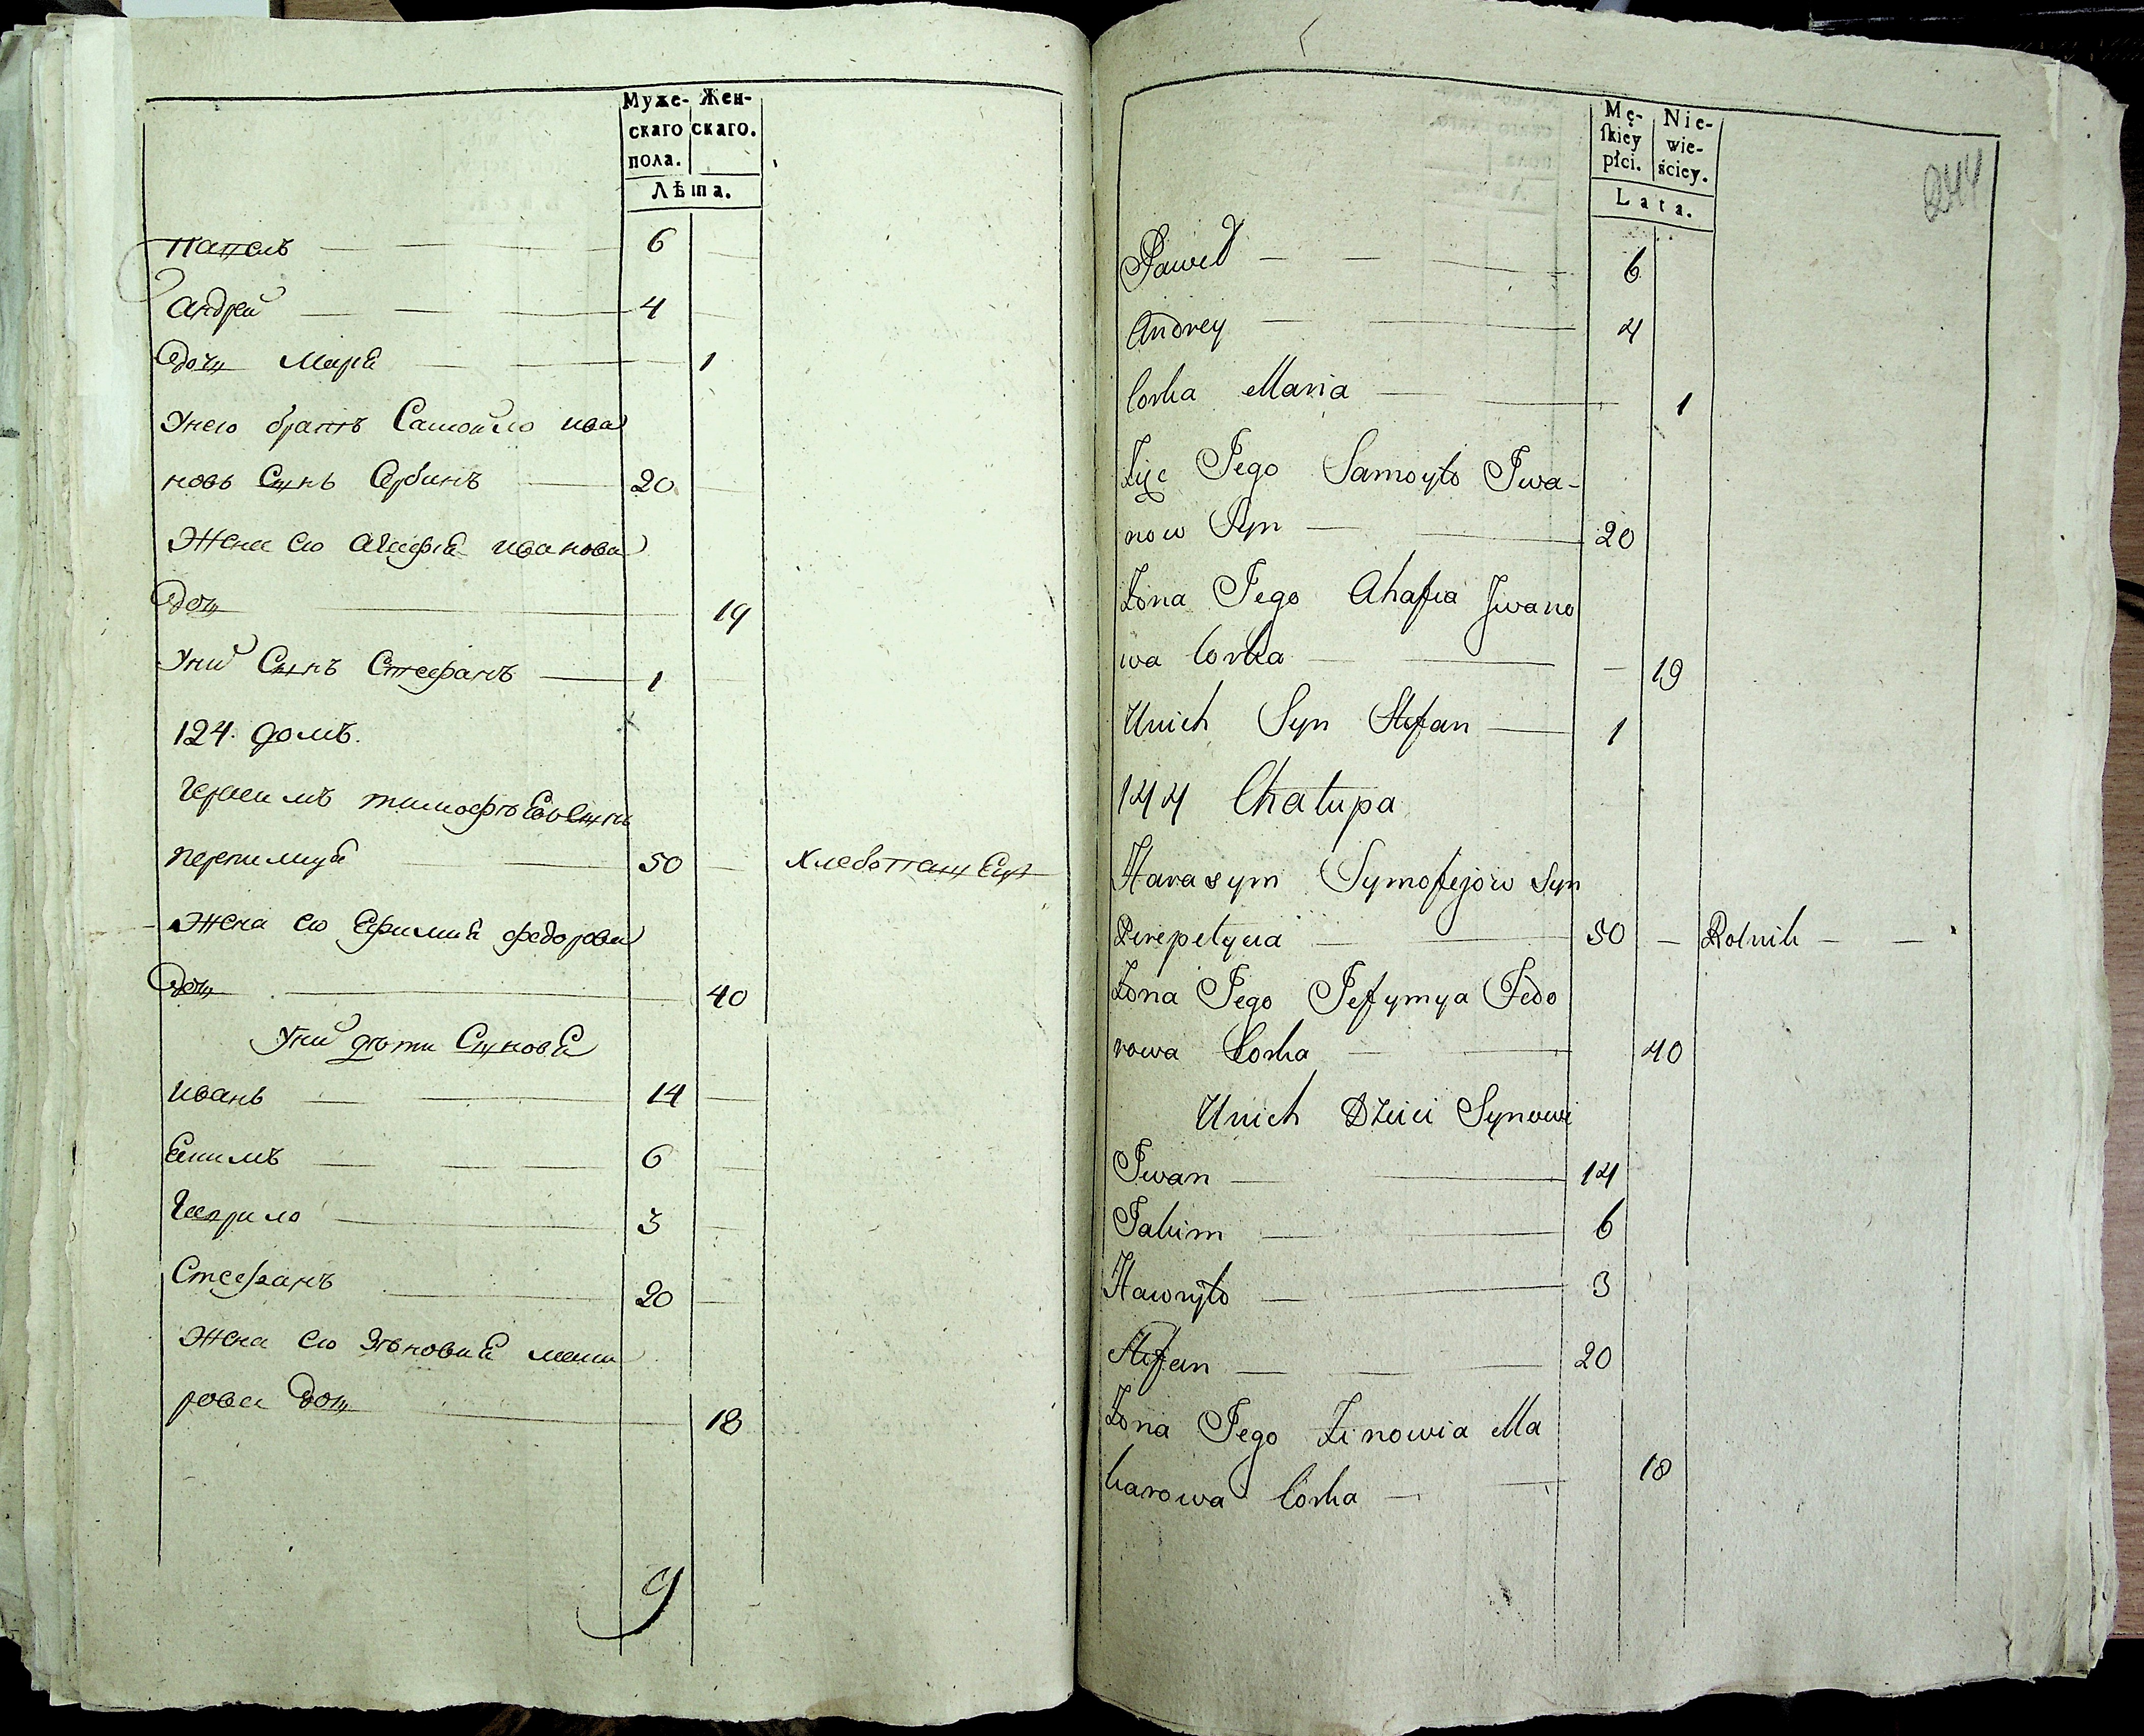 Муже- Жен-
скаго скаго.
пола.
Лѣта.
Павелъ 6
Андрей 4
дочь Марія 1
Унего братъ Самойло ива
новъ Сынъ Сербинъ 20
Жена его Агафія иванова
дочь 19
Уних Сынъ Стефанъ 1
124. домъ.
Герасимъ тимофѣевъ Сынъ
Перепилица 50 Хлебопашецъ
Жена его Ефимия федорова
дочь 40
Уних дѣти Синовя
иванъ 14
Екимъ 6
Гаврило 3
Стефанъ 20
Жена его Зѣновия мака
рова дочь 18
9
Mę- Nie-
skiey wie-
płci. ściey.
Lata.
244
Paweł 6
Andrey 4
Corka Maria 1
Jego Samoyło Iwa-
now Syn 20
Żona Jego Ahafia Jwano
wa Corka 19
Unich Syn Stefan 1
144 Chałupa
Harasym Tymofejow Syn
50 Rolnik
Żona Jego Jefymya Fedo
rowa Corka 40
Unich Dzieci Synowi
Iwan 14
Jakim 6
Hawryło 3
Stefan 20
Żona Jego Zinowia Ma
karowa Córka 18